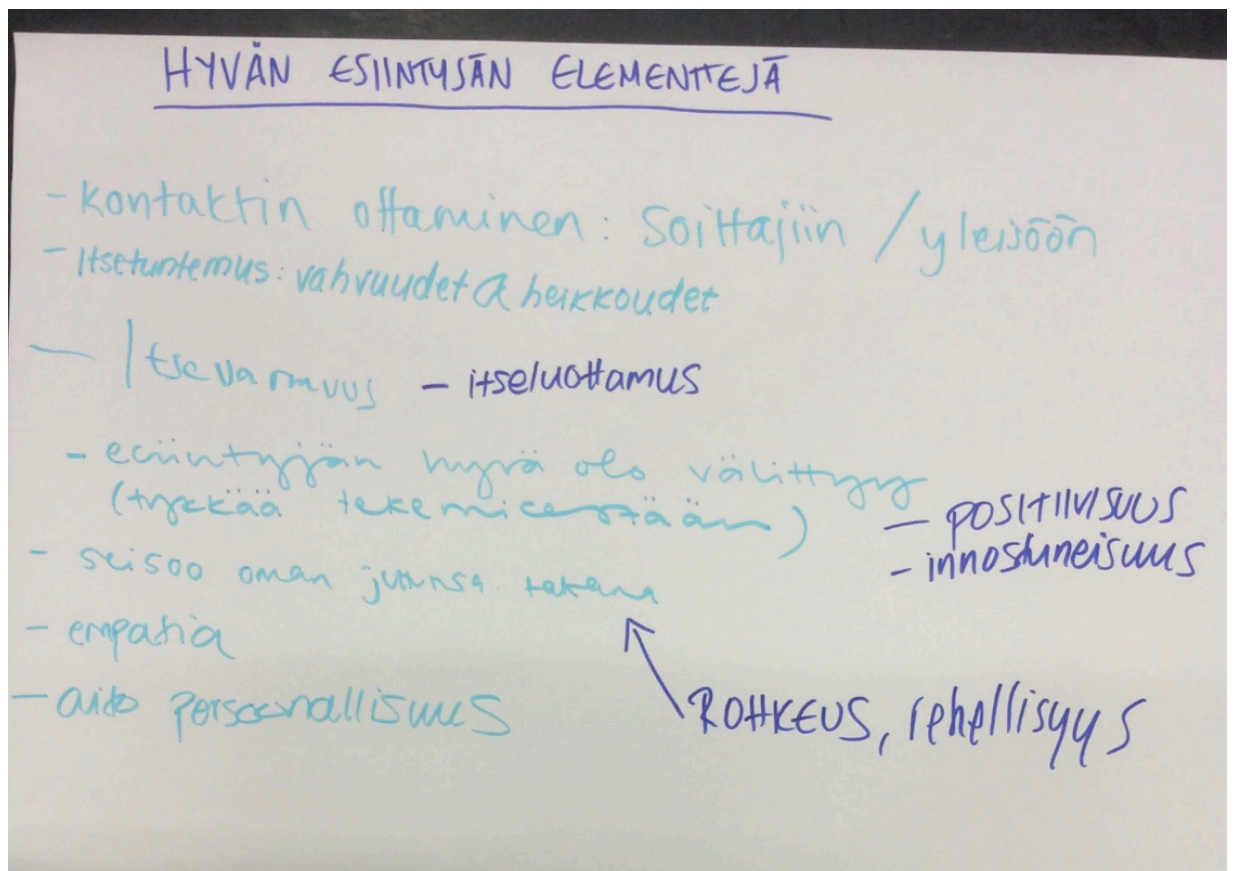 HYVÄN ESIINTYJÄN ELEMENTTEJÄ
- kontaktin ottaminen: soittajiin / yleisöön
- Itsetuntemus: vahvuudet & heikkoudet
- Itsevarmuus - itseluottamus
- esiintyjän hyvä olo välittyy
(tykkää tekemisestään)
- POSITIIVISUUS
- innostuneisuus
- seisoo oman juttunsa takana
- empatia
- aito persoonallisuus
ROHKEUS, rehellisyys